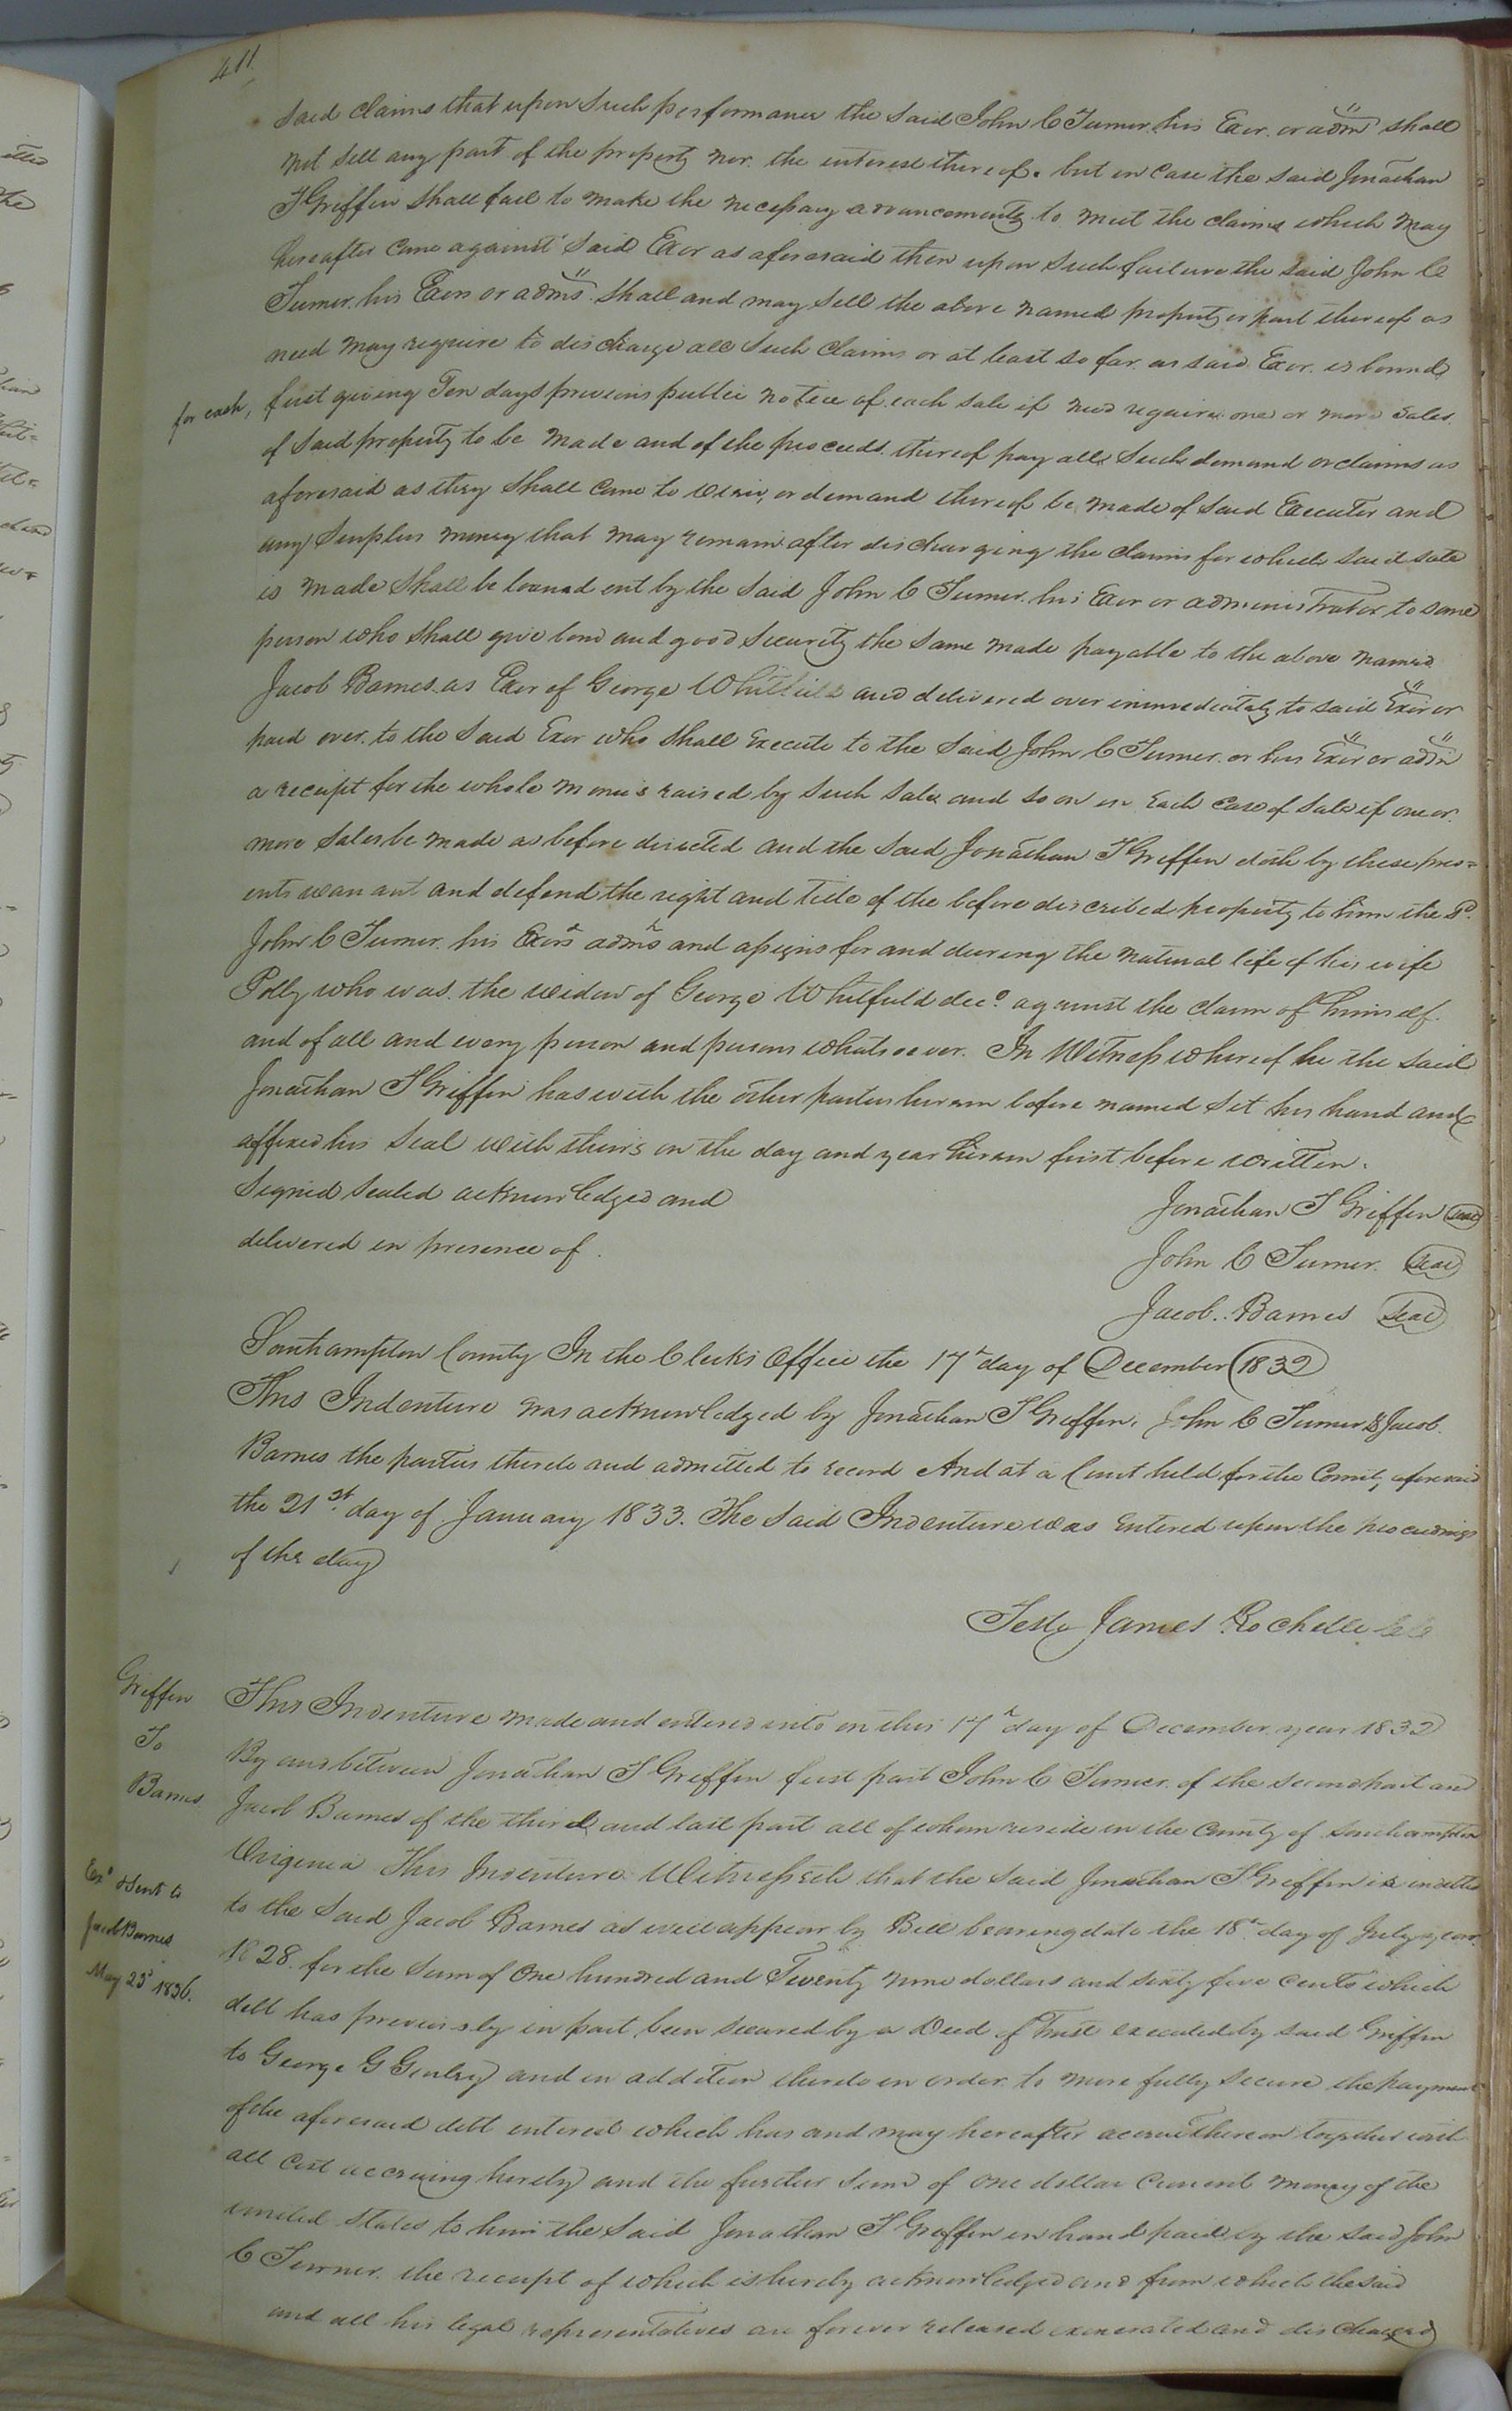 411
said claims that upon such performance the said John C Turner, his Exor. or adm shall
not sell any part of the property nor. the interest thereof. but in case the said Jonathan
T Griffin shall fail to make the necessary advancements to meet the claims which may
hereafter come against said Exor as aforesaid then upon such failure the said John C
Turner. his Exors or adms. shall and may sell the above named property or part thereof as
need may require to discharge all such claims or at least so far. as said Exor. is bound,
for cash, first giving Ten days previous public notice of each sale if need require one or more sales.
of said property to be made and of the proceeds. thereof pay all such demand or claims as
aforesaid as they shall come to view, or demand thereof be made of said Executor and
any surplus money that may remain after discharging the claims for which said sale
is made shall be loaned out by the said John C Turner. his Exor or administrator to some
person who shall give bond and good security the same made payable to the above named
Jacob Barnes. as Exor of George Whitfield and delivered over immediately to said Exor or
paid over. to the said Exor who shall execute to the said John C Turner. or his Exor or adm
a receipt for the whole monies raised by such sales and so on in each case of sale if one or.
more sales be made as before directed and the said Jonathan T Griffin doth by these pres=
ents warrant and defend the right and title of the before described property to him the sd.
John C Turner. his Exors adms and assigns for and during the natural life of his wife
Polly who was. the widow of George Whitfield decd. against the claim of himself.
and of all and every person and persons whatsoever. In Witness whereof he the said
Jonathan T Griffin has with the other parties herein before named set his hand and
affixed his seal with theirs on the day and year herein first before written.
Signed sealed acknowledged and
delivered in presence of.
Jonathan T Griffin seal
John C Turner. seal
Jacob.. Barnes seal
Southampton County In the Clerks Office the 17th day of December 1832
This Indenture was acknowledged by Jonathan T Griffin, John C Turner & Jacob.
Barnes the parties thereto and admitted to record And at a Court held for the County aforesaid
the 21st. day of January 1833. The said Indenture was entered upon the proceedings
of the day
Teste James Rochelle CC
Griffin
To
Barnes
Exd & Sent to
Jacob Barnes
May 23d 1836.
This Indenture made and entered into on this 17th day of December. year 1832
By and between Jonathan T Griffin first part John C Turner. of the second part and
Jacob Barnes of the third and last part all of whom reside in the County of Southampton
Virginia This Indenture Witnesseth that the said Jonathan T Griffin is indebted
to the said Jacob Barnes as will appear by Bill bearing date the 18th day of July year.
1828. for the sum of One hundred and Twenty nine dollars and sixty five cents which
debt has previously in part been secured by a Deed of Trust executed by said Griffin
to George G and in addition thereto in order. to more fully secure the payment
of the aforesaid debt interest which has and may hereafter accrue thereon together with
all cost accruing hereby and the further sum of one dollar current money of the
united States to him the said Jonathan T Griffin in hand paid by the said John
C Turner. the receipt of which is hereby acknowledged and from which the said
and all his legal representatives are forever released exonerated and discharged